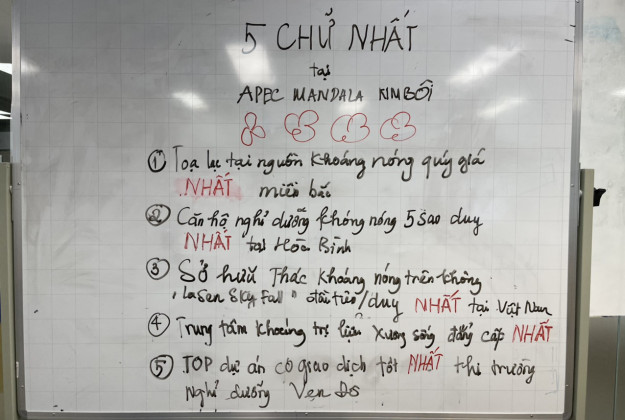 5 CHỮ NHẤT
tại
APEC MANDALA KIM BÔI
① Toạ lạc tại nguồn khoáng nóng quý giá
NHẤT miền bắc
② Căn hộ nghỉ dưỡng khoáng nóng 5 sao duy
NHẤT tại Hòa Bình
③ Sở hữu Thác khoáng nóng trên không
"Lasen Sky Fall" đầu tiên/duy NHẤT tại Việt Nam
④ Trung tâm khoáng trị liệu xương sống đẳng cấp NHẤT
⑤ TOP dự án có giao dịch tốt NHẤT thị trường
Nghỉ dưỡng Ven Đô